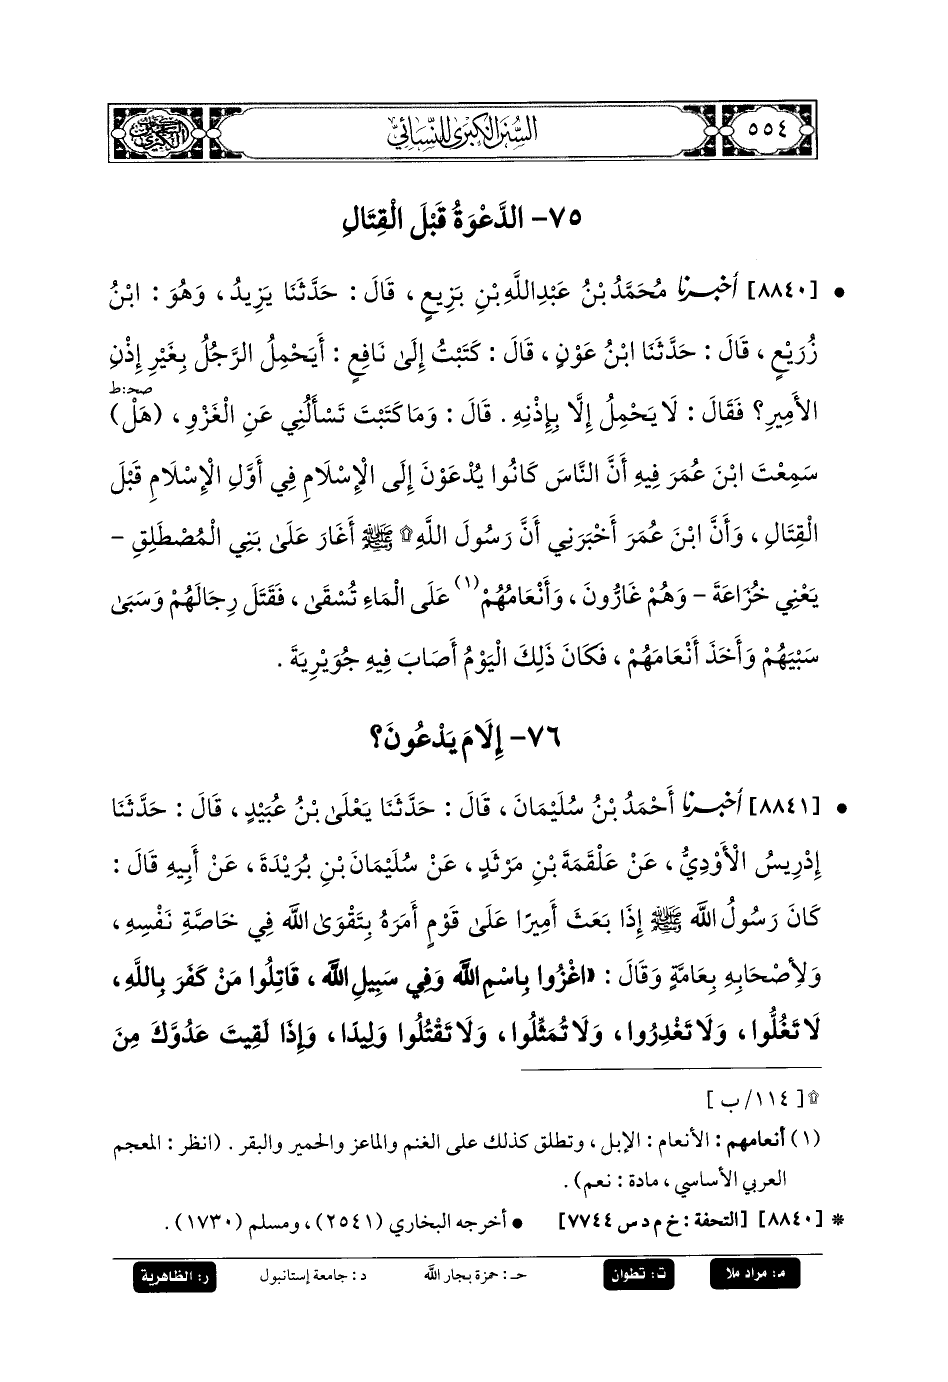 ٥٥٤
السُّنَنُ الكُبْرَى لِلنَّسَائِيِّ
٧٥- الدَّعْوَةُ قَبْلَ الْقِتَالِ
• [٨٨٤٠] أَخْبَرَنَا مُحَمَّدُ بْنُ عَبْدِ اللَّهِ بْنِ بَزِيعٍ ، قَالَ : حَدَّثَنَا يَزِيدُ ، وَهُوَ : ابْنُ
زُرَيْعٍ ، قَالَ : حَدَّثَنَا ابْنُ عَوْنٍ ، قَالَ : كَتَبْتُ إِلَىٰ نَافِعٍ : أَيَحْمِلُ الرَّجُلُ بِغَيْرِ إِذْنِ
الأَمِيرِ؟ فَقَالَ : لَا يَحْمِلُ إِلَّا بِإِذْنِهِ . قَالَ : وَمَا كَتَبْتَ تَسْأَلُنِي عَنِ الْغَزْوِ ، (هَلْ) صحـ:ط
سَمِعْتَ ابْنَ عُمَرَ فِيهِ أَنَّ النَّاسَ كَانُوا يُدْعَوْنَ إِلَى الْإِسْلَامِ فِي أَوَّلِ الْإِسْلَامِ قَبْلَ
الْقِتَالِ ، وَأَنَّ ابْنَ عُمَرَ أَخْبَرَنِي أَنَّ رَسُولَ اللَّهِ ۩ ﷺ أَغَارَ عَلَىٰ بَنِي الْمُصْطَلِقِ –
يَعْنِي خُزَاعَةَ – وَهُمْ غَارُّونَ ، وَأَنْعَامُهُمْ (١) عَلَى الْمَاءِ تُسْقَىٰ ، فَقَتَلَ رِجَالَهُمْ وَسَبَىٰ
سَبْيَهُمْ وَأَخَذَ أَنْعَامَهُمْ ، فَكَانَ ذَلِكَ الْيَوْمُ أَصَابَ فِيهِ جُوَيْرِيَةَ .
٧٦- إِلَامَ يَدْعُونَ؟
• [٨٨٤١] أَخْبَرَنَا أَحْمَدُ بْنُ سُلَيْمَانَ ، قَالَ : حَدَّثَنَا يَعْلَىٰ بْنُ عُبَيْدٍ ، قَالَ : حَدَّثَنَا
إِدْرِيسُ الْأَوْدِيُّ ، عَنْ عَلْقَمَةَ بْنِ مَرْثَدٍ ، عَنْ سُلَيْمَانَ بْنِ بُرَيْدَةَ ، عَنْ أَبِيهِ قَالَ :
كَانَ رَسُولُ اللَّهِ ﷺ إِذَا بَعَثَ أَمِيرًا عَلَىٰ قَوْمٍ أَمَرَهُ بِتَقْوَىٰ اللَّهِ فِي خَاصَّةِ نَفْسِهِ ،
وَلِأَصْحَابِهِ بِعَامَّةٍ وَقَالَ : «اغْزُوا بِاسْمِ اللَّهِ وَفِي سَبِيلِ اللَّهِ ، قَاتِلُوا مَنْ كَفَرَ بِاللَّهِ ،
لَا تَغُلُّوا ، وَلَا تَغْدِرُوا ، وَلَا تُمَثِّلُوا ، وَلَا تَقْتُلُوا وَلِيدًا ، وَإِذَا لَقِيتَ عَدُوَّكَ مِنَ
۩ [ ١١٤/ ب ]
(١) أنعامهم : الأنعام : الإبل ، وتطلق كذلك على الغنم والماعز والحمير والبقر . (انظر : المعجم
العربي الأساسي ، مادة : نعم) .
* [٨٨٤٠] [التحفة : خ م د س ٧٧٤٤] • أخرجه البخاري (٢٥٤١) ، ومسلم (١٧٣٠) .
م: مراد ملا ت: تطوان حـ : حمزة بجار الله د : جامعة إستانبول ر: الظاهرية